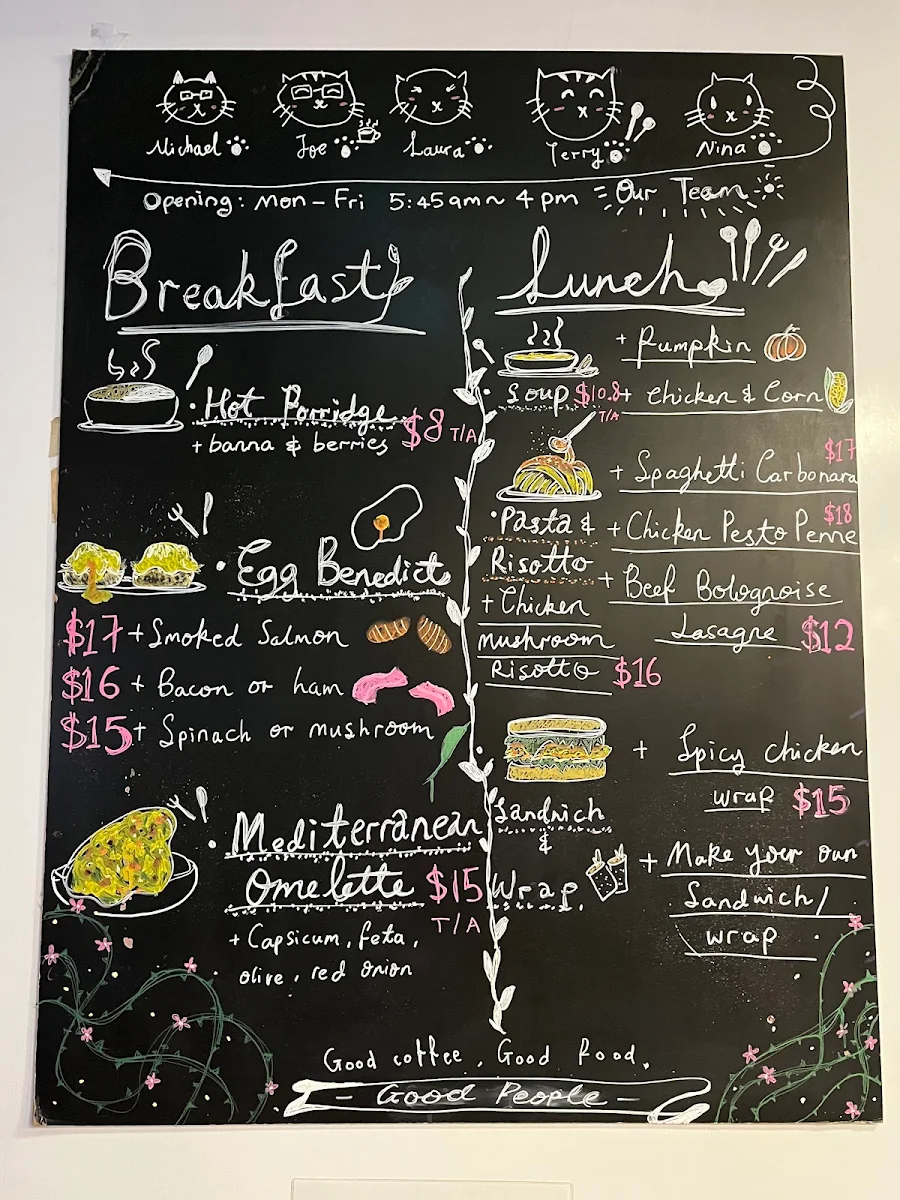 Michael Joe Laura Terry Nina
Opening: Mon – Fri 5:45am ~ 4 pm Our Team
Breakfast
Hot Porridge
+ banna & berries $8 T/A
Egg Benedict
$17 + Smoked Salmon
$16 + Bacon or ham
$15 + Spinach or mushroom
Mediterranean
Omelette $15
T/A
+ Capsicum, feta,
olive, red onion
Lunch
+ Pumpkin
Soup $10.8 + Chicken & Corn
T/A
+ Spaghetti Carbonara $17
Pasta & + Chicken Pesto Penne $18
Risotto + Beef Bolognoise
Lasagne $12
+ Chicken
mushroom
Risotto $16
+ Spicy chicken
wrap $15
Sandwich
&
Wrap
+ Make your own
Sandwich/
wrap
Good coffee, Good Food,
– Good People –